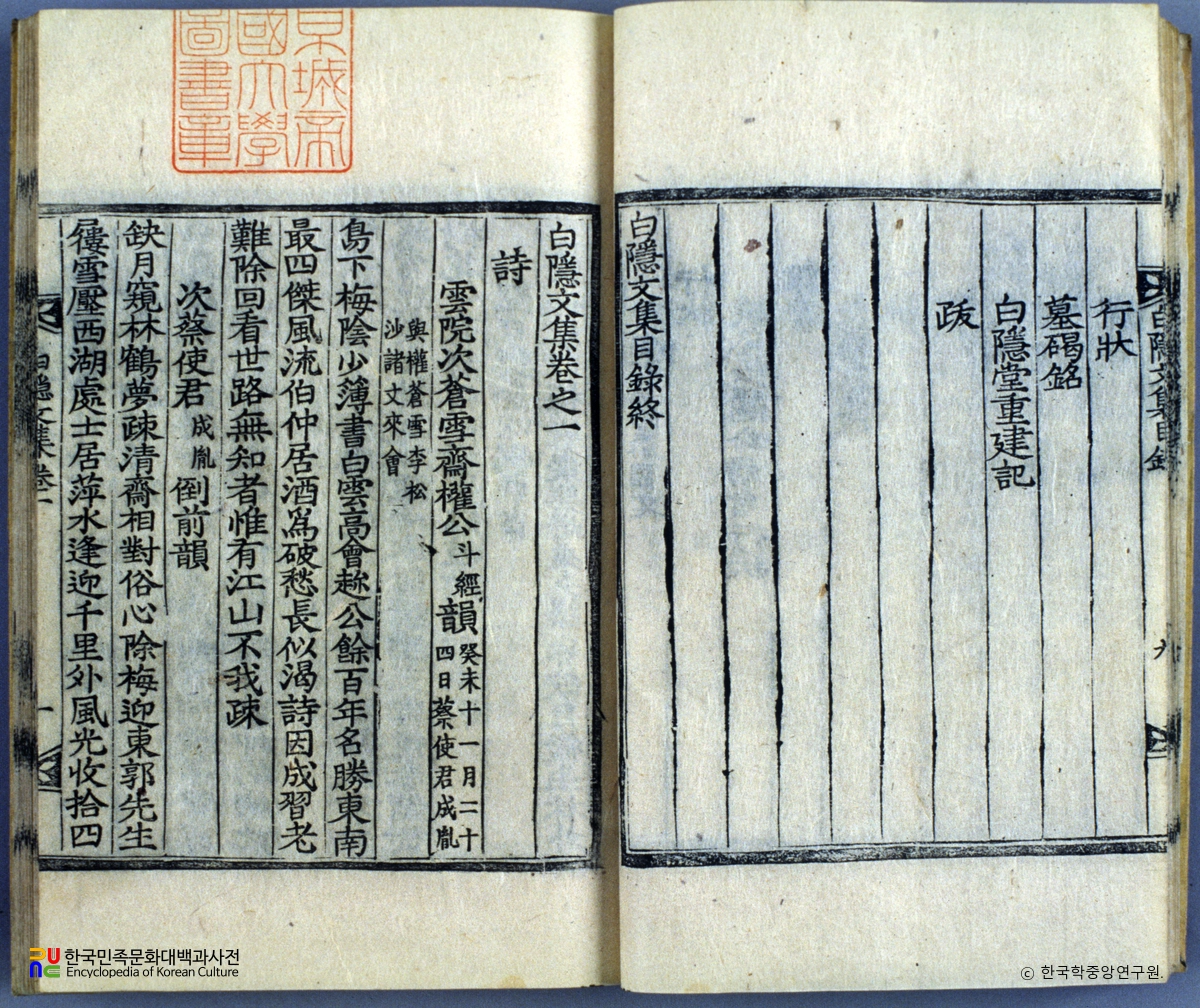 白隱文集目錄
九
行狀
墓碣銘
白隱堂重建記
跋
白隱文集目錄終
京城帝
國大學
圖書章
白隱文集卷之一
詩
雲院次蒼雪齋權公斗經韻癸未十一月二十四日蔡使君成胤
與權蒼雪李松沙諸丈來會
島下梅陰少簿書白雲高會趂公餘百年名勝東南
最四傑風流伯仲居酒爲破愁長似渴詩因成習老
難除回看世路無知者惟有江山不我疎
次蔡使君成胤倒前韻
缺月窺林鶴夢疎清齋相對俗心除梅迎東郭先生
屨雪壓西湖處士居萍水逢迎千里外風光收拾四
白隱文集卷一
一
한국민족문화대백과사전
Encyclopedia of Korean Culture
© 한국학중앙연구원.